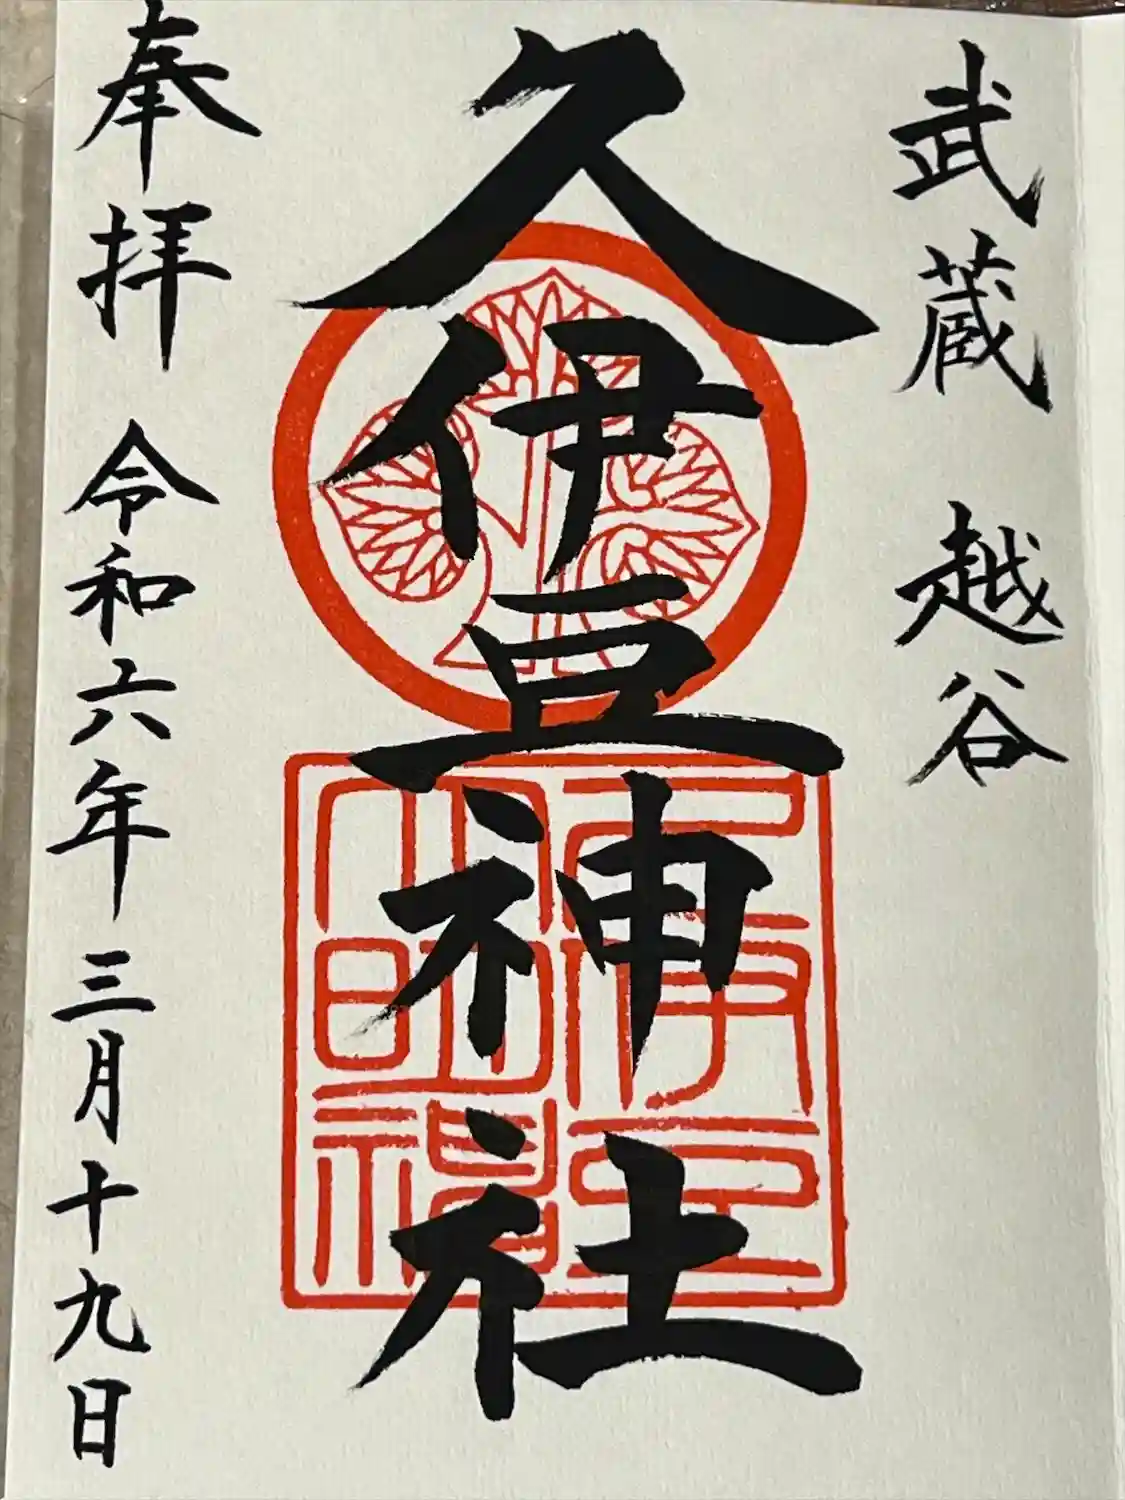 武蔵 越谷
久伊豆神社
奉拝 令和六年三月十九日